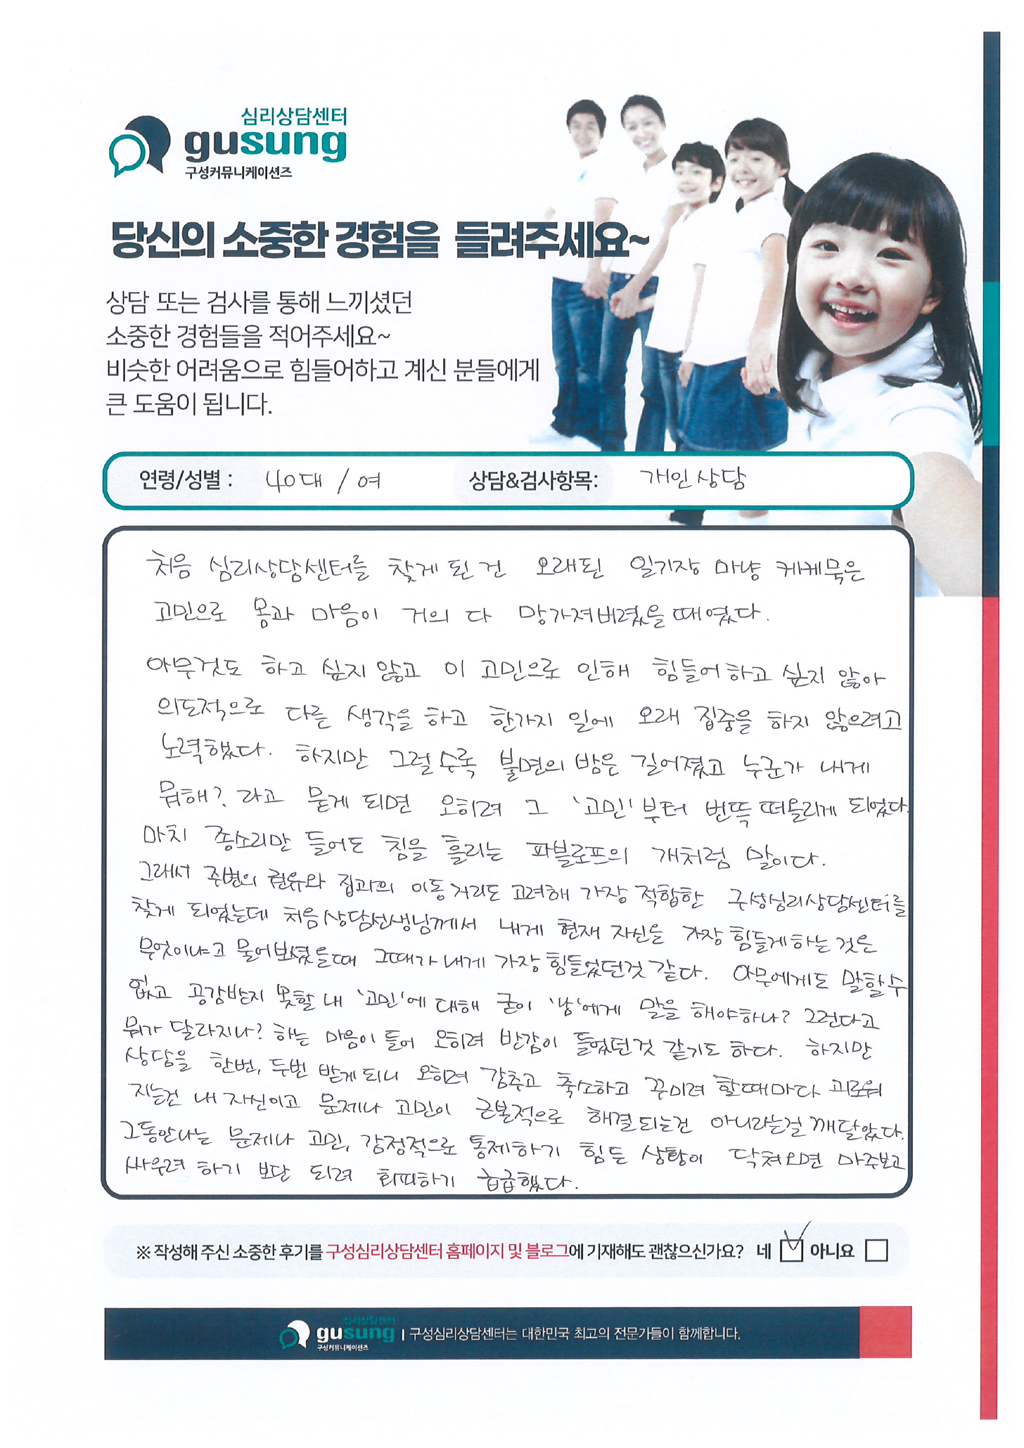 심리상담센터
gusung
구성커뮤니케이션즈
당신의 소중한 경험을 들려주세요~
상담 또는 검사를 통해 느끼셨던
소중한 경험들을 적어주세요~
비슷한 어려움으로 힘들어하고 계신 분들에게
큰 도움이 됩니다.
연령/성별 : 40대 / 여 상담&검사항목: 개인상담
처음 심리상담센터를 찾게 된 건 오래된 일기장 마냥 케케묵은
고민으로 몸과 마음이 거의 다 망가져버렸을 때였다.
아무것도 하고 싶지 않고 이 고민으로 인해 힘들어하고 싶지 않아
의도적으로 다른 생각을 하고 한가지 일에 오래 집중을 하지 않으려고
노력했다. 하지만 그럴수록 불면의 밤은 길어졌고 누군가 내게
뭐해? 라고 묻게 되면 오히려 그 '고민'부터 번뜩 떠올리게 되었다.
마치 종소리만 들어도 침을 흘리는 파블로프의 개처럼 말이다.
그래서 주변의 권유와 집과의 이동거리도 고려해 가장 적합한 구성심리상담센터를
찾게 되었는데 처음 상담선생님께서 내게 현재 자신을 가장 힘들게 하는 것은
무엇이냐고 물어보셨을때 그때가 내게 가장 힘들었던것 같다. 아무에게도 말할 수
없고 공감받지 못할 내 '고민'에 대해 굳이 '남'에게 말을 해야하나? 그런다고
뭐가 달라지나? 하는 마음이 들어 오히려 반감이 들었던것 같기도 하다. 하지만
상담을 한번, 두번 받게 되니 오히려 감추고 축소하고 꾸미려 할때마다 괴로워
지는건 내 자신이고 문제나 고민이 근본적으로 해결되는건 아니라는걸 깨달았다.
그동안 나는 문제나 고민, 감정적으로 통제하기 힘든 상황이 닥쳐오면 마주보고
싸우려 하기 보단 되려 회피하기 급급했다.
※ 작성해 주신 소중한 후기를 구성심리상담센터 홈페이지 및 블로그에 기재해도 괜찮으신가요? 네 아니요
심리상담센터
gusung
구성커뮤니케이션즈
구성심리상담센터는 대한민국 최고의 전문가들이 함께합니다.